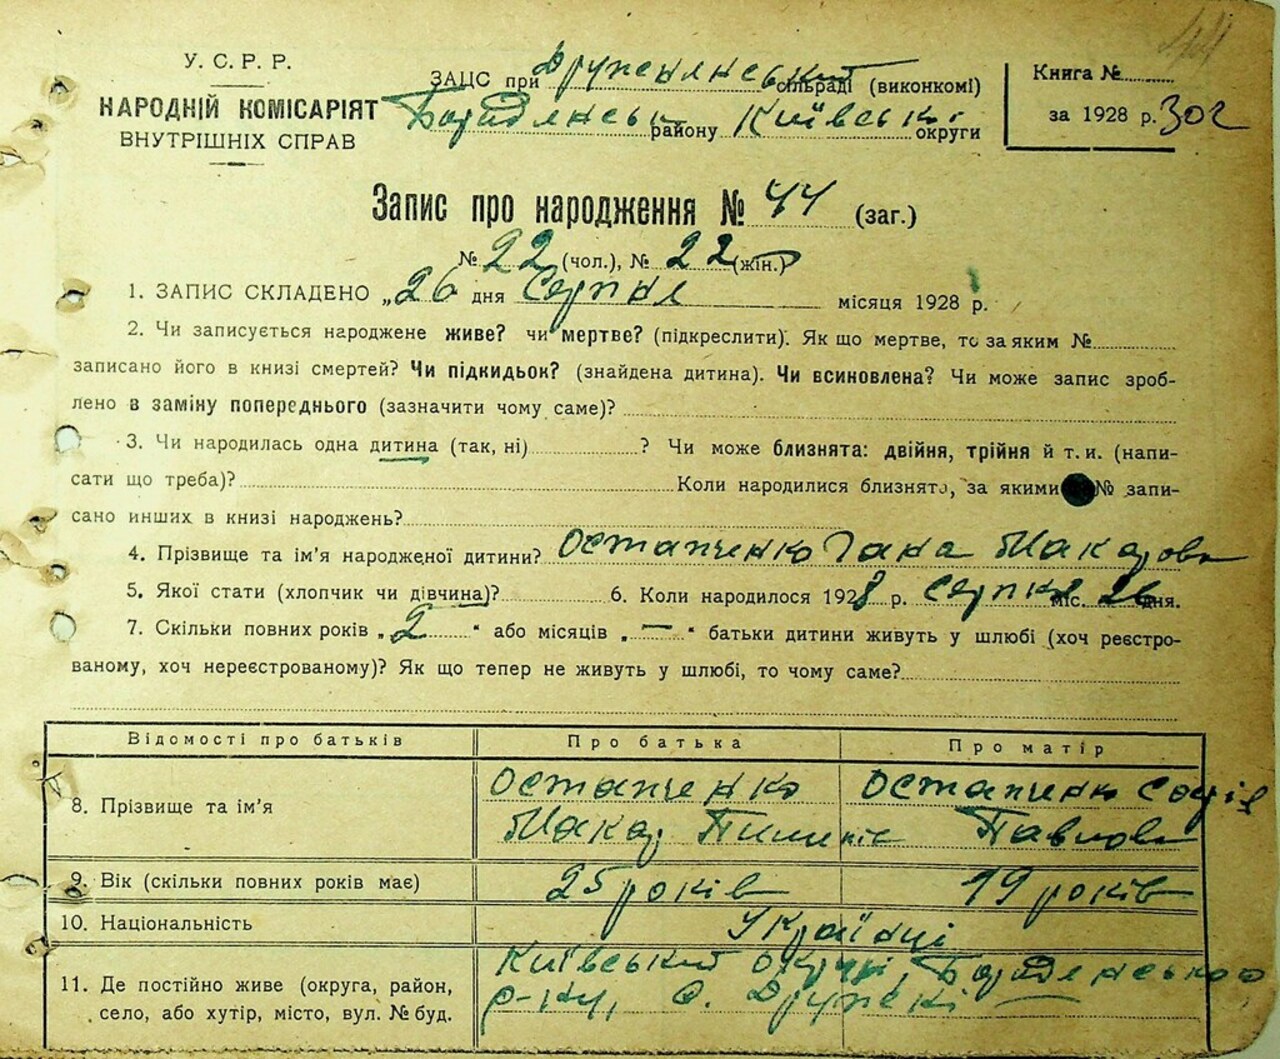 У. С. Р. Р.
НАРОДНІЙ КОМІСАРІЯТ
ВНУТРІШНІХ СПРАВ
ЗАЦС при Дружнянський сільраді (виконкомі)
Бородянськ району Київської округи
Книга №
за 1928 р.
Запис про народження № 44 (заг.)
№ 22 (чол.), № 22 (жін.)
1. ЗАПИС СКЛАДЕНО „26 дня Серпня місяця 1928 р.
2. Чи записується народжене живе? чи мертве? (підкреслити). Як що мертве, то за яким №
записано його в книзі смертей? Чи підкидьок? (знайдена дитина). Чи всиновлена? Чи може запис зроб-
лено в заміну попереднього (зазначити чому саме)?
3. Чи народилась одна дитина (так, ні) ? Чи може близнята: двійня, трійня й т. и. (напи-
сати що треба)? Коли народилися близнята, за якими № запи-
сано инших в книзі народжень?
4. Прізвище та ім'я народженої дитини? Остапченко Гана Макарова
5. Якої стати (хлопчик чи дівчина)? 6. Коли народилося 1928 р. Серпня міс. 26 дня.
7. Скільки повних років „2“ або місяців „—“ батьки дитини живуть у шлюбі (хоч реєстро-
ваному, хоч нереєстрованому)? Як що тепер не живуть у шлюбі, то чому саме?
Відомості про батьків Про батька Про матір
8. Прізвище та ім'я Остапченко Макар Пилипів Остапченко Софія Павлова
9. Вік (скільки повних років має) 25 років 19 років
10. Національність Українці
11. Де постійно живе (округа, район, Київський округі, Бородянського
село, або хутір, місто, вул. № буд. р-ну, с. Дружні